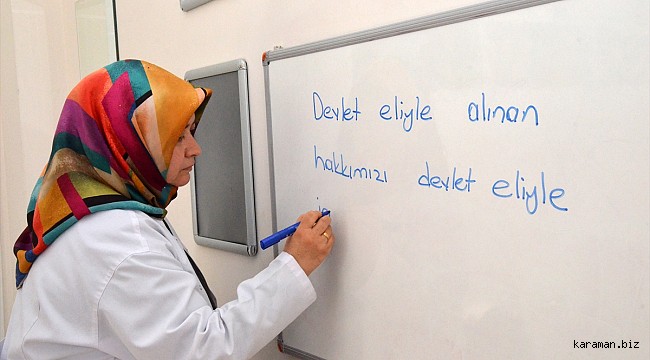 Devlet eliyle alınan
hakkımızı devlet eliyle
karaman.biz